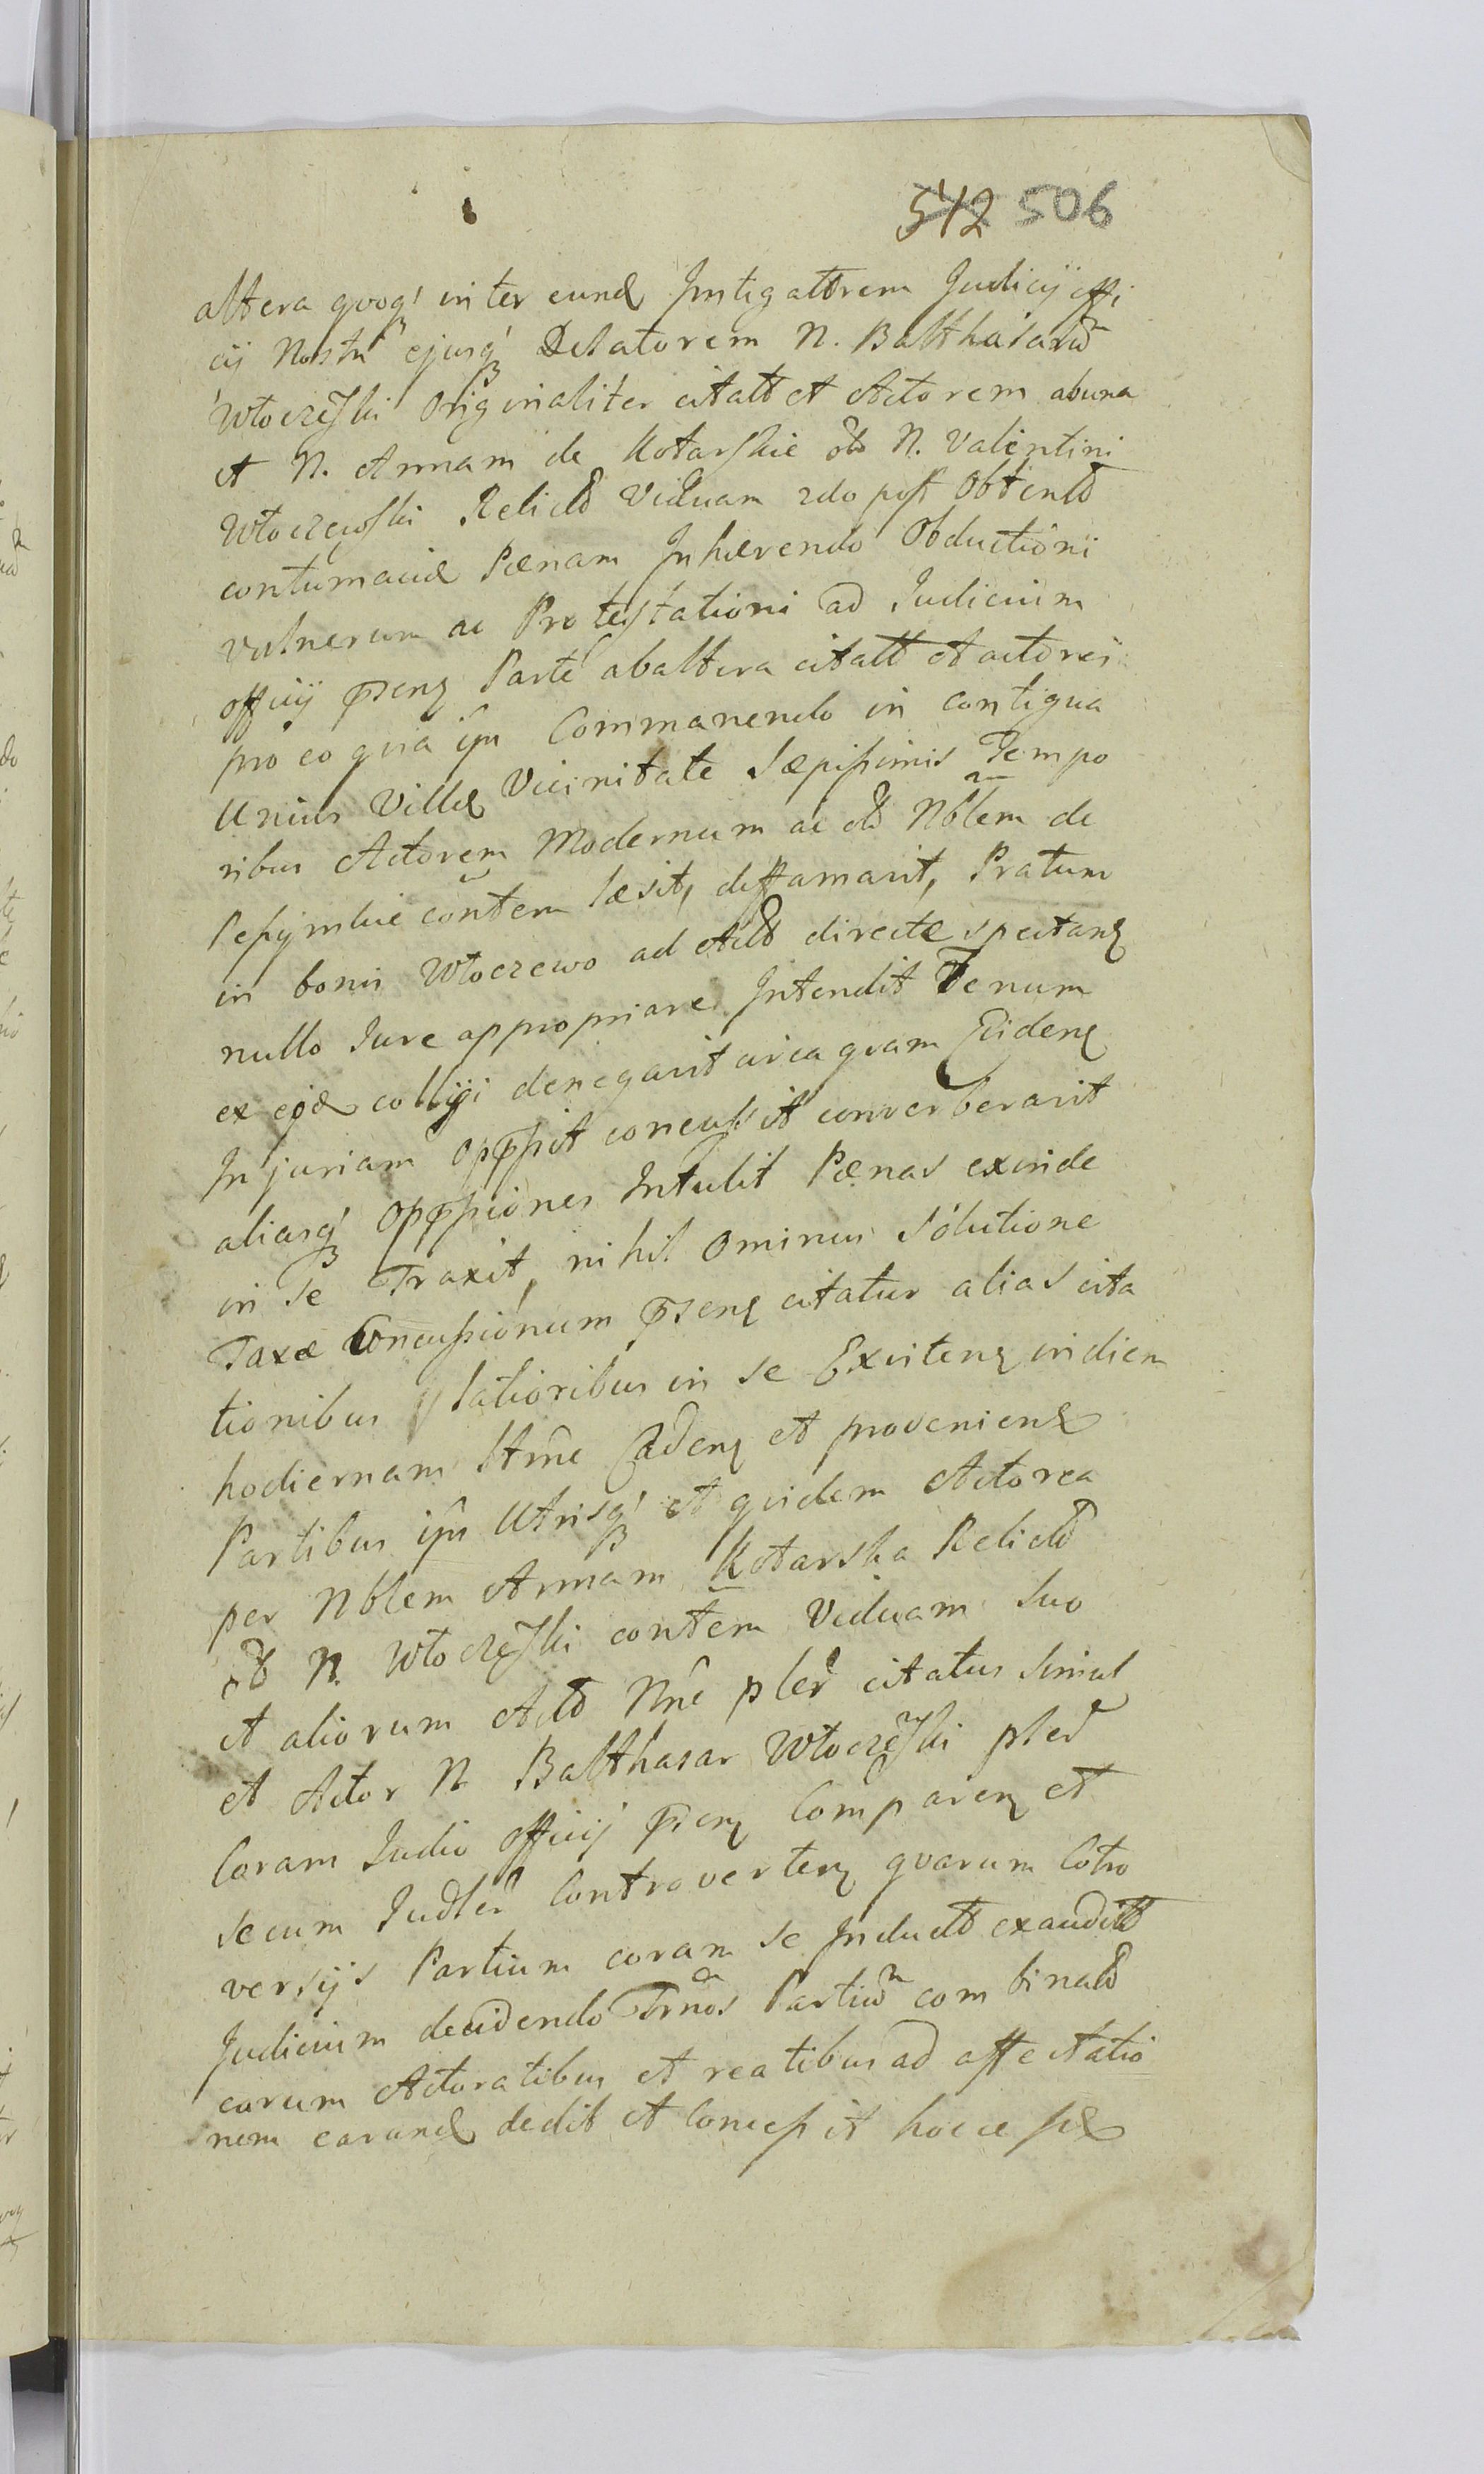 542 506
altera qvoq́ inter eund Instigattorem Judicÿ offi
cÿ Nostri ejusq́ Delatorem N. Balthasarū
Włoczeſki Originaliter citatt et Actorem abuna
et N. Annam de Kotarſkie olō N. Valentini
Włoczewſki Relictā Viduam 2do poſt Obtentā
contumaciæ Pænam Inhærendo Obductioni
vulnerum ac Proteſtationi ad Judicium
officÿ p̄senʒ Parte abaltera citatt et actorei
pro eo qvia ipsi Commanendo in contigua
Unius Villæ Vicinitate Sæpiſsimis Tempo
ribus Actorem Modernum ac olō Nblem de
contem læsit, diffamarit, Pratum
in bonis Włoczewo ad Actō directe spectanʒ
nullo Jure appropriare Intendit Fenum
ex eod colligi denegarit circa qvam Evidenʒ
Injuriam opp̄ſsit concuſsit converberarit
aliasq́ Opp̄ſsiones Intulit Pænas exinde
in Se Traxit, nihil Ominus Solutione
Taxæ Concuſsionum p̄senʒ citatur alias cita
tionibus latioribus in se Exſitenʒ in diem
hodiernam Attñe Cadenʒ et provenienʒ
Partibus ipsis Utrisq́ et qvidem Actorea
per Nblem Annam Kotarska Relictā
olō N. Włoczeſki contem Viduam Suo
et aliorum Actō Nñe pler̄ citatus Simul
et Actor N Balthasar Włoczeſki pler̄
Coram Judio officÿ p̄senʒ Comparenʒ et
secum Judler̄ Controvertenʒ qvarum Cotro
versÿs Partium coram se Inductō exauditō
Judicium decidendo Trños Partiū com binatō
earum Actoratibus et reatibus ad affectatio
nem earund dedit et Conceſsit hocce ſuæ